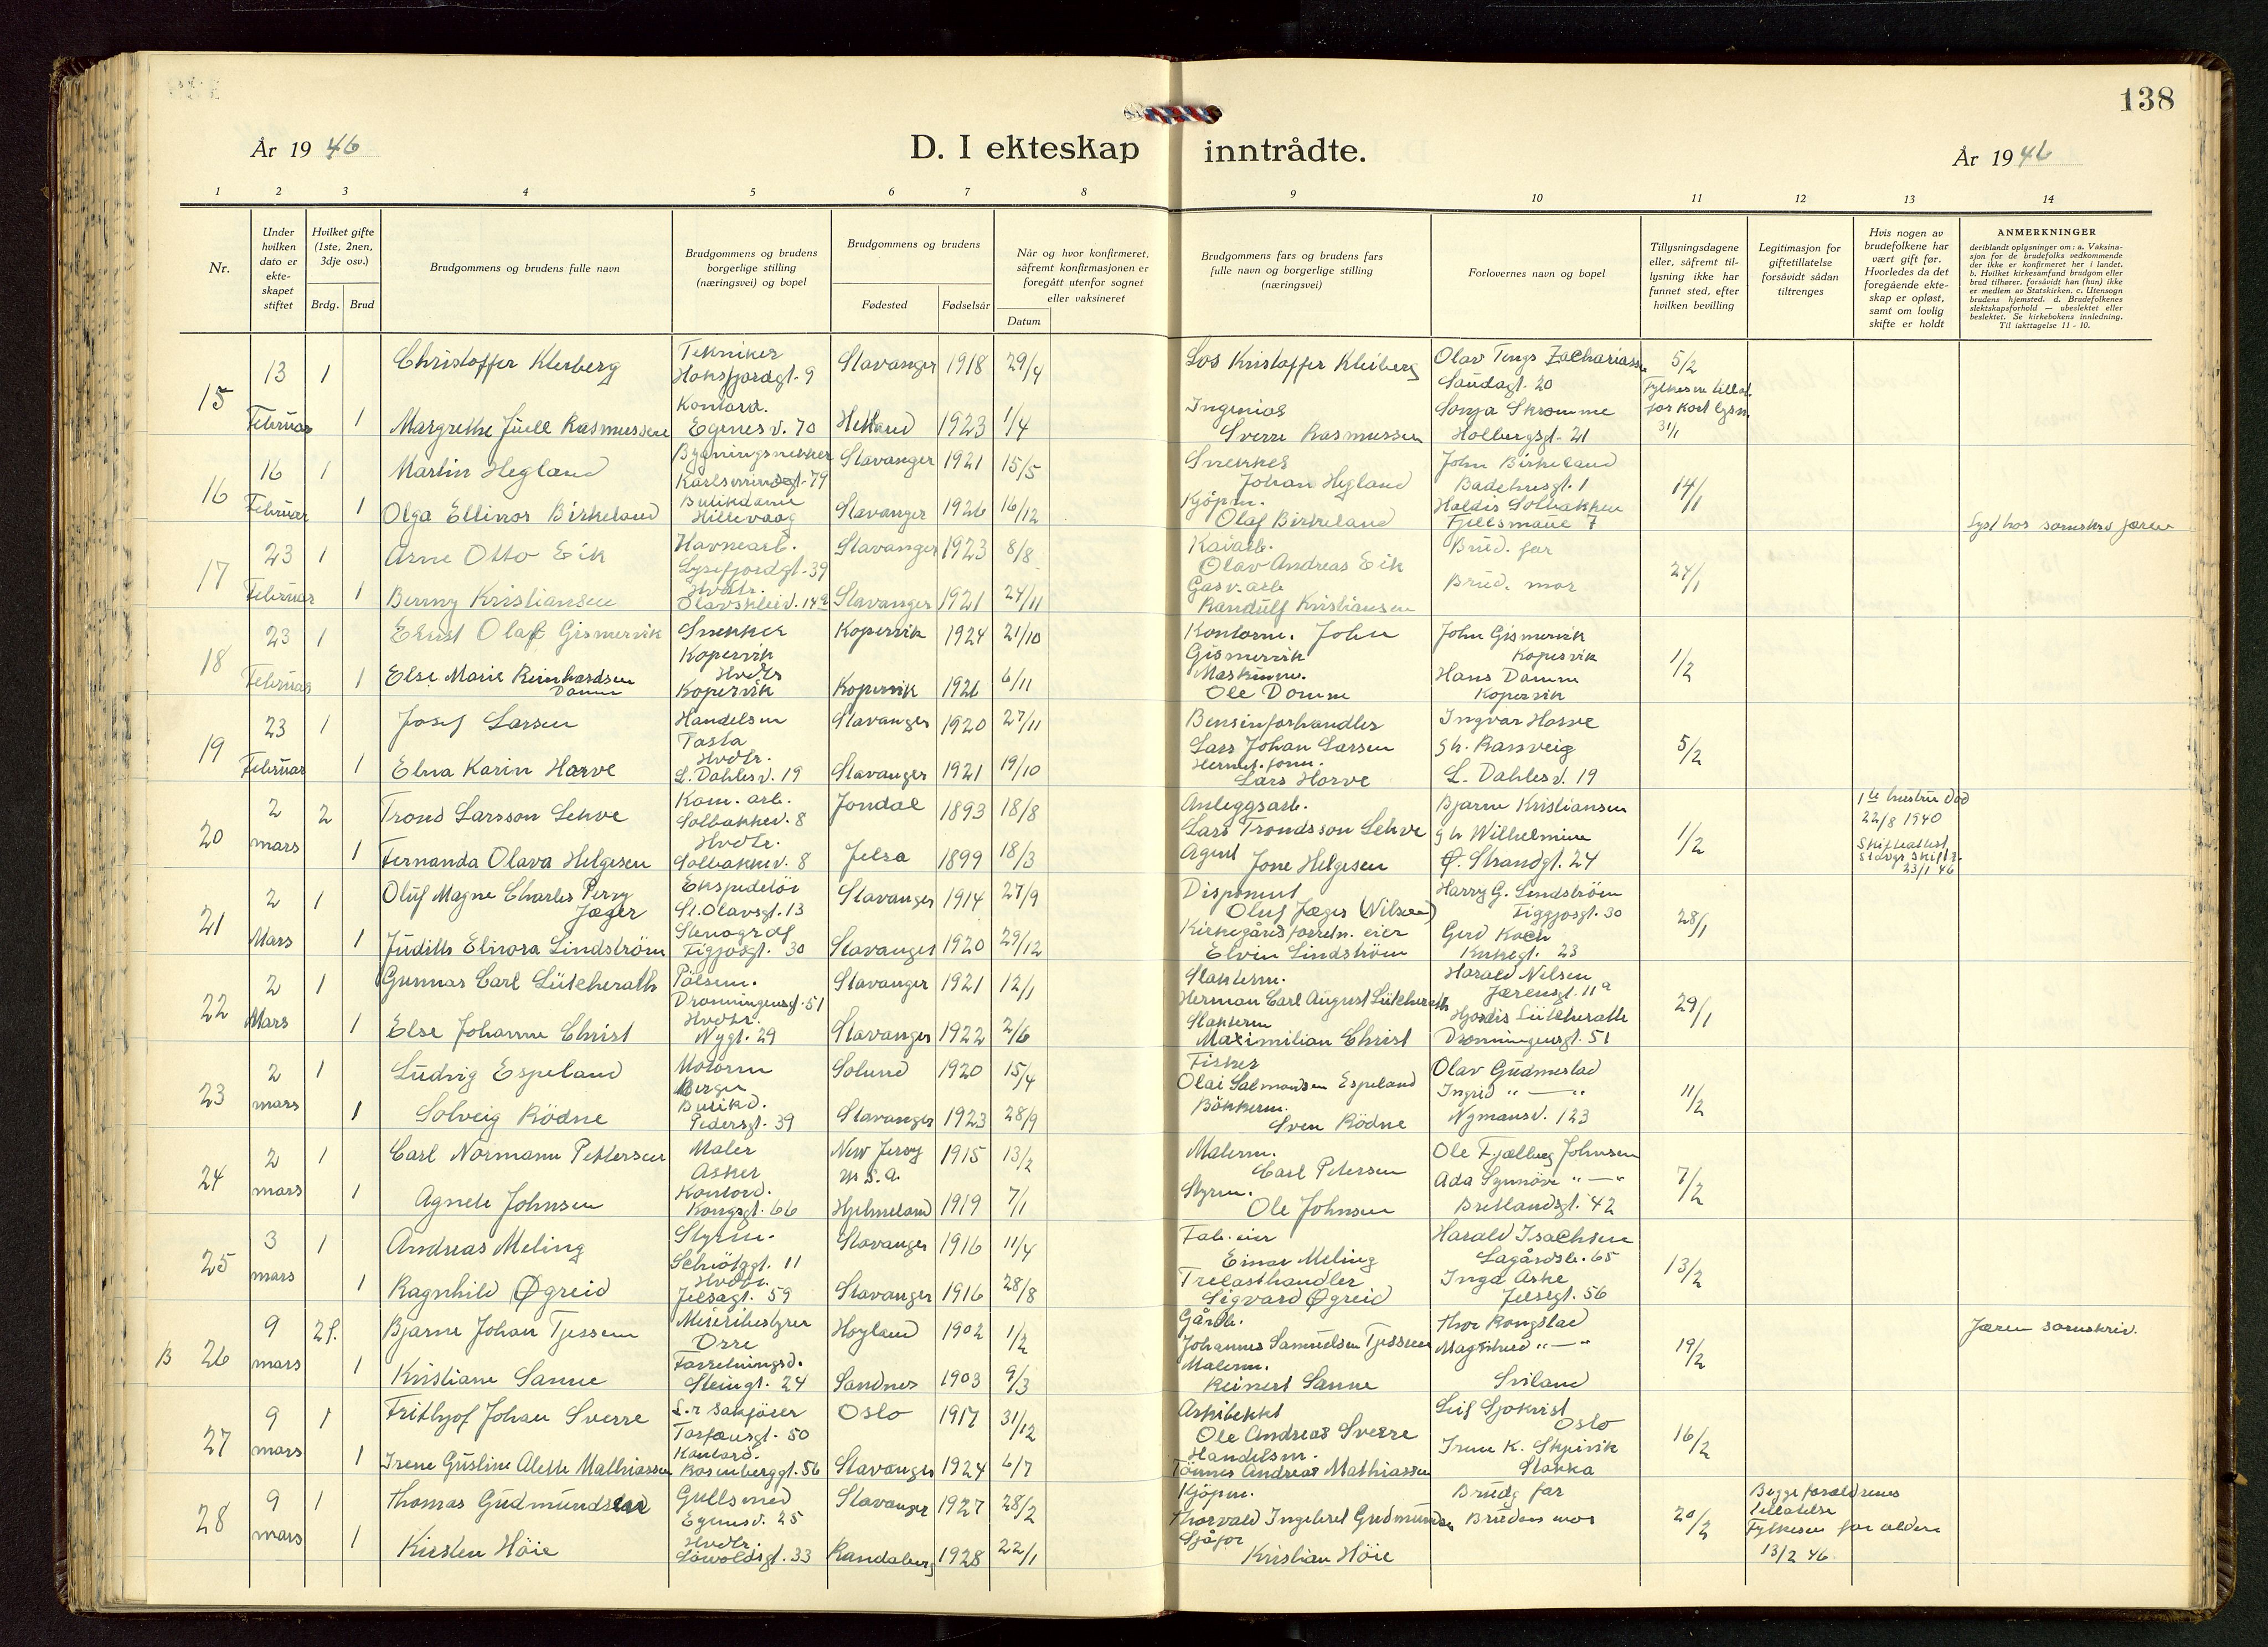 138
År 1946
D. I ekteskap inntrådte.
År 1946
1 2 3 4 5 6 7 8 9 10 11 12 13 14
Nr.
Under hvilken dato er ekteskapet stiftet
Hvilket gifte (1ste, 2nen, 3dje osv.)
Brdg. Brud
Brudgommens og brudens fulle navn
Brudgommens og brudens borgerlige stilling (næringsvei) og bopel
Brudgommens og brudens
Fødested Fødselsår
Når og hvor konfirmeret, såfremt konfirmasjonen er foregått utenfor sognet eller vaksineret
Datum
Brudgommens fars og brudens fars fulle navn og borgerlige stilling (næringsvei)
Forlovernes navn og bopel
Tillysningsdagene eller, såfremt tillysning ikke har funnet sted, efter hvilken bevilling
Legitimasjon for giftetillatelse forsåvidt sådan tiltrenges
Hvis nogen av brudefolkene har vært gift før. Hvorledes da det foregående ekteskap er opløst, samt om lovlig skifte er holdt
ANMERKNINGER
deriblandt oplysninger om: a. Vaksinasjon for de brudefolks vedkommende der ikke er konfirmeret her i landet. b. Hvilket kirkesamfund brudgom eller brud tilhører, forsåvidt han (hun) ikke er medlem av Statskirken. c. Utensogn brudens hjemsted. d. Brudefolkenes slektskapsforhold — ubeslektet eller beslektet. Se kirkebokens innledning. Til iakttagelse 11 - 10.
15 13 Februar 1 Christoffer Kleiberg Tekniker Stavanger 1918 29/4 Los Kristoffer Kleiberg Olav Tengs Zachariassen Sandsgt. 20 5/2
1 Margrethe Juell Rasmussen Kontord. Egenesv. 70 Hetland 1923 1/4 Ingeniør Sverre Rasmussen Sonja Skromme Holbergsgt. 21 31/1
16 16 Februar 1 Martin Hegland Bygningsnekker Stavanger 1921 15/5 Snekker Johan Hegland John Birkeland Badehusgt. 1 14/1
1 Olga Ellinor Birkeland Butikdame Hillevaag Stavanger 1926 16/12 Kjöpm. Olaf Birkeland Haldis Solbakken 7 Lyst hos sornskr Jæren
17 23 Februar 1 Arne Otto Eik Havnearb. Lysefjordgt. 39 Stavanger 1923 8/8 Kaiarb. Olav Andreas Eik Brud. far 24/1
1 Benny Kristiansen Hvdtr. Olavskleiv. 14a Stavanger 1921 24/11 Gasv. arb Randulf Kristiansen Brud. mor
18 23 Februar 1 Ernst Olaf Gismervik Snekker Kopervik Kopervik 1924 21/10 Kontorm. John Gismervik John Gismervik Kopervik 1/2
1 Else Marie Reinhardsen Damm Hvdtr Kopervik Kopervik 1926 6/11 Maskinm. Ole Damm Hans Damm Kopervik
19 23 Februar 1 Josef Larsen Handelsm Tasta Stavanger 1920 27/11 Bensinforhandler Lars Johan Larsen Ingvar Harve 5/2
1 Elna Karin Harve Hvdtr. L. Dahlesv. 19 Stavanger 1921 19/10 Lars Harve gh. Ranveig L. Dahlesv. 19
20 2 mars 2 Trond Larsson Lehve Kom. arb. Solbakkev. 8 Jondal 1893 18/8 Anleggsarb. Lars Trondsson Lehve Bjarne Kristiansen 1/2 1ste hustru död 22/8 1940
1 Fernanda Olava Helgesen Hvdtr. Solbakkev. 8 Jelsa 1899 18/3 Agent Jone Helgesen gh Wilhelmine Ø. Strandgt. 24 Skifteattest Stavgr. Skiftr. 23/1 46
21 2 Mars 1 Oluf Magne Charles Perry Jæger Ekspeditör St. Olavsgt. 13 Stavanger 1914 27/9 Disponent Oluf Jæger (Nilsen) Harry G. Lindström Figgjosgt. 30 28/1
1 Judith Elinora Lindström Stenograf Figjosgt. 30 Stavanger 1920 29/12 Kirkegårds forretn. eier Elvin Lindström Gerd Koch 23
22 2 Mars 1 Gunnar Carl Lütcherath Pölsem. Dronningensgt. 51 Stavanger 1921 12/1 Slakterm. Herman Carl August Lütcherath Harald Nilsen Jærensgt. 11a 29/1
1 Else Johanne Christ Hvdtr. Nygt. 29 Stavanger 1922 2/6 Slakterm Maximilian Christ Hjordis Lütcherath Dronningensgt. 51
23 2 mars 1 Ludvig Espeland Motorm Bergen Solund 1920 15/4 Fisker Olai Salmonsen Espeland Olav Gudmestad 11/2
1 Solveig Rödne Butikd. Pedersgt. 39 Stavanger 1923 28/9 Bökkerm. Sven Rödne Ingrid " — " Nymansv. 123
24 2 mars 1 Carl Normann Pettersen Maler Asker New Jersy U.S.A. 1915 13/2 Malerm. Carl Petersen Ole Fjælberg Johnsen 7/2
1 Agnete Johnsen Kontord. Kongsgt. 66 Hjelmeland 1919 7/1 Styrm. Ole Johnsen Ada Synnöve " — " Breilandsgt. 42
25 3 mars 1 Andreas Meling Styrm. Schiötzgt. 11 Stavanger 1916 11/4 Fab. eier Einar Meling Harald Isachsen Lagårdsv. 65 13/2
1 Ragnhild Øgreid Hvdtr. Jelsagt. 59 Stavanger 1916 28/8 Trelasthandler Sigvard Øgreid Inga Aske Jelsagt. 56
B 26 9 mars 2 f. Bjarne Johan Tjessem Meieribestyrer Orre Hoyland 1902 1/2 Gårdb. Johannes Samuelsen Tjessem Thor Rongstad 19/2 Jæren sornskriv.
1 Kristiane Sanne Forretningsd. Steingt. 24 Sandnes 1903 9/3 Malerm. Reinert Sanne Magnhild " — " Sviland
27 9 mars 1 Frithjof Johan Sverre L.r sakförer Torfæusgt. 50 Oslo 1917 31/12 Arkitekt Ole Andreas Sverre Leif Sjokvist Oslo 16/2
1 Irene Gusline Alette Mathiassen Kontord. Rosenberggt. 56 Stavanger 1924 6/7 Handelsm. Tönnes Andreas Mathiassen Irene K. Skeivik Stokka
28 9 mars 1 Thomas Gudmundsen Gullsmed Egenesv. 25 Stavanger 1927 28/2 Kjöpm. Thorvald Ingebret Gudmundsen Brudg far 20/2 Begge foreldrenes tillatelse
1 Kirsten Höie Hvdtr. Lövoldsgt. 33 Randaberg 1928 22/1 Sjåför Kristian Höie Brudens mor Fylkesm for alder 13/2 46